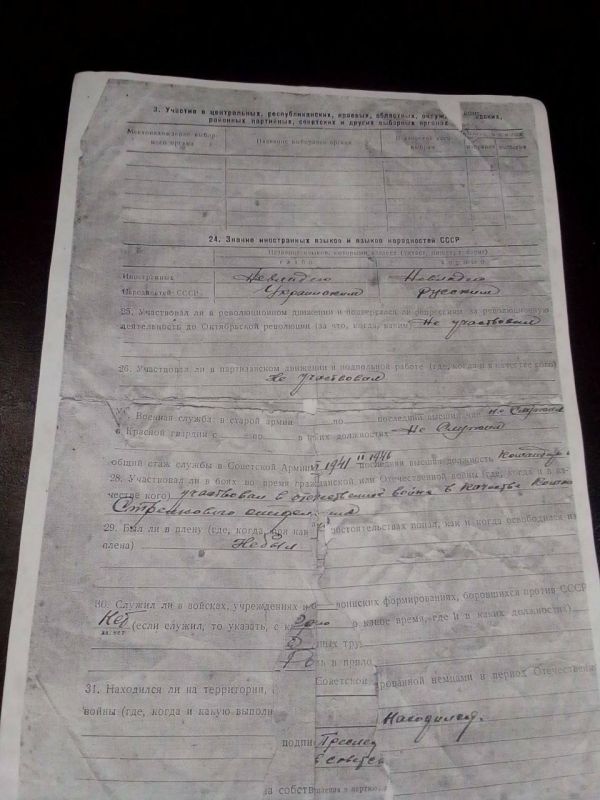 3. Участие в центральных, республиканских, краевых, областных, окруж
районных партийных, советских и других выборных органах
Местонахождение выбор-
ного органа
Название выборного органа
24. Знание иностранных языков и языков народностей СССР
слабо
хорошо
Иностранных Не владею Не владею
Народностей СССР Украинским Русским
25. Участвовал ли в революционном движении и подвергался ли репрессиям за революционную
деятельность до Октябрьской революции (за что, когда, каким) Не участвовал
26. Участвовал ли в партизанском движении и подпольной работе (где, когда и в качестве кого)
Не участвовал
Военная служба в старой армии по последний высший чин не служил
в Красной гвардии с по в каких должностях Не служил
общий стаж службы в Советской Армии 1941 1946 последняя высшая должность Командир
28. Участвовал ли в боях во время гражданской или Отечественной войны (где, когда и в ка-
честве кого) участвовал в отечественной война в качестве
Стрелкового отделения
29. Был ли в плену (где, когда, при как обстоятельствах попал, как и когда освободился из
плена) Не был
30. Служил ли в войсках, учреждениях и воинских формированиях, боровшихся против СССР
Нет (если служил, то указать, с к какое время, где и в каких должностях)
да, нет
ных тру
ь в прило
Советской
31. Находился ли на территории, рованной немцами в период Отечествен
войны (где, когда и какую выполн Находился.
подпи
в совет
на собств